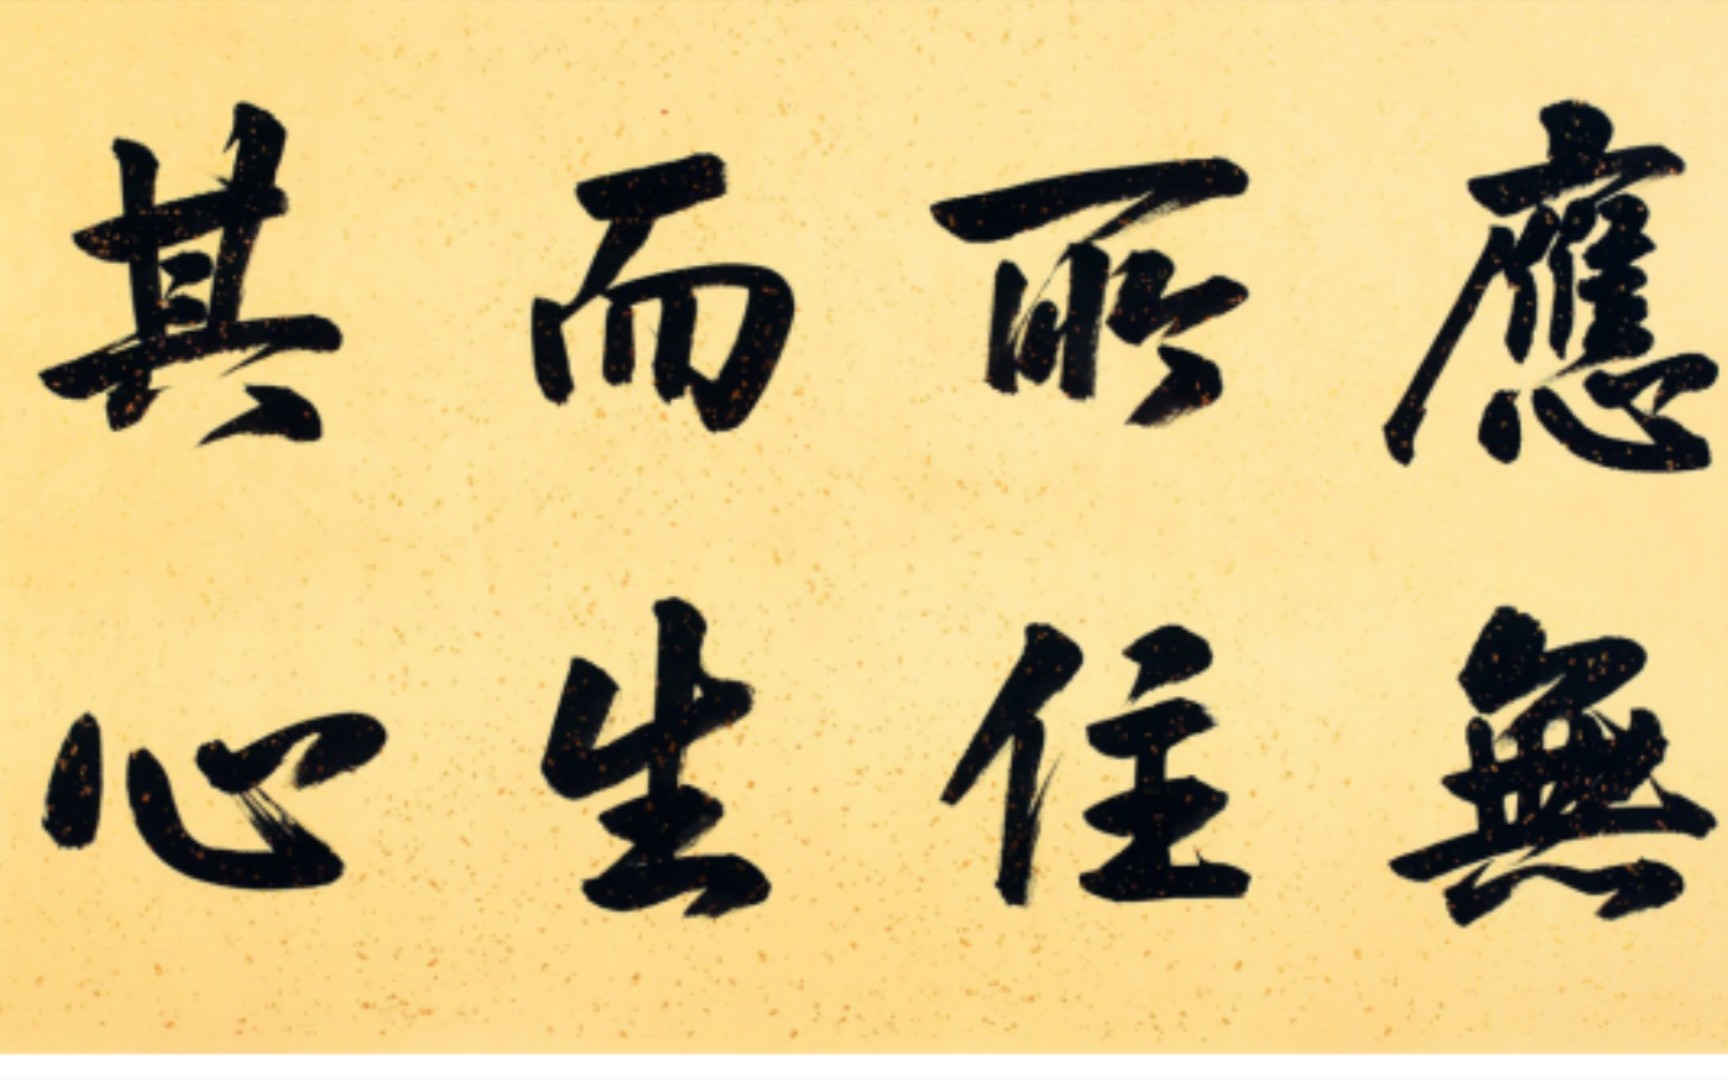 應無
所住
而生
其心